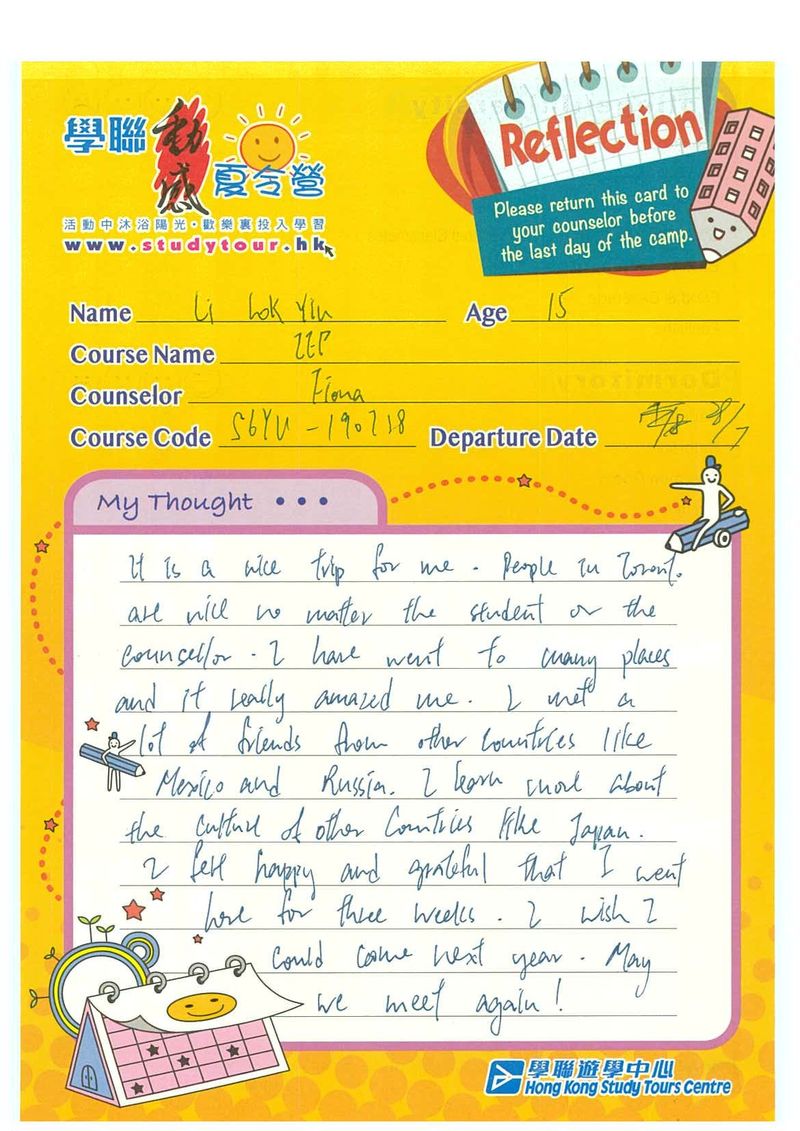 學聯動感夏令營
活動中沐浴陽光·歡樂裏投入學習
www.studytour.hk
Reflection
Please return this card to
your counselor before
the last day of the camp.
Name Li Lok Yin Age 15
Course Name ZEP
Counselor Fiona
Course Code S6YU-190718 Departure Date 28/7
My Thought • • •
It is a nice trip for me. People in Toront.
are nice no matter the student or the
counsellor. I have went to many places
and it really amazed me. I met a
lot of friends from other countries like
Mexico and Russia. I learn more about
the culture of other countries like Japan.
I feel happy and grateful that I went
here for three weeks. I wish I
could come next year. May
we meet again!
學聯遊學中心
Hong Kong Study Tours Centre